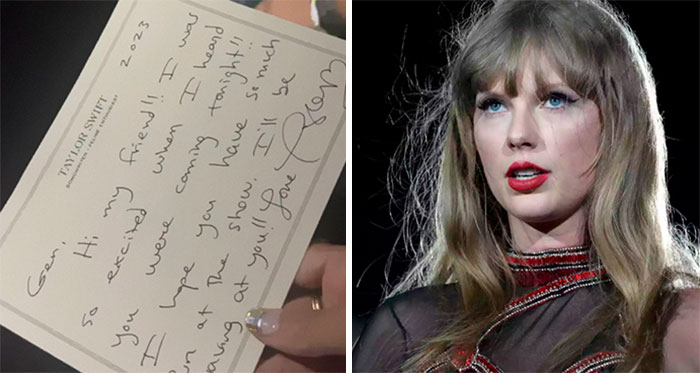 TAYLOR SWIFT
2023
Gen,
Hi my friend!! I was
so excited when I heard
you were coming tonight!!
I hope you have so much
un at The show I'll be
aving at you!! Love